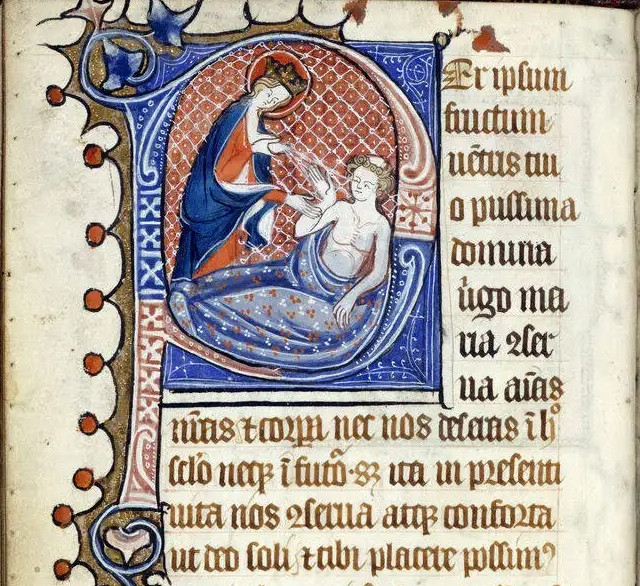 Per ipsum
fructum
uētris tui
o pussima
domina
uͥgo ma
ria ꝯser
ua aīas
nr̄as ⁊ corꝑa nec nos deseras ī hͦ
sclō neqꝫ ī futͦo sꝫ ita in presenti
uita nos ꝯserua atqꝫ conforta
ut deo soli ⁊ tibi placere possimꝰ